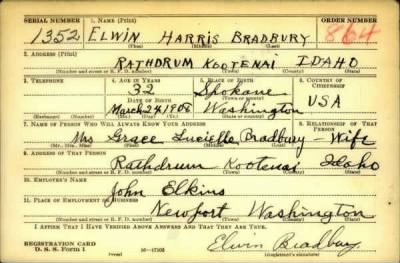 SERIAL NUMBER 1. NAME (Print) ORDER NUMBER
1352 ELWIN HARRIS BRADBURY 864
(First) (Middle) (Last)
2. ADDRESS (Print)
RATHDRUM KOOTENAI IDAHO
(Number and street or R. F. D. number) (Town) (County) (State)
3. TELEPHONE 4. AGE IN YEARS 5. PLACE OF BIRTH 6. COUNTRY OF CITIZENSHIP
32 Spokane
DATE OF BIRTH (Town or county)
March 24, 1908 Washington USA
(Exchange) (Number) (Mo.) (Day) (Yr.) (State or country)
7. NAME OF PERSON WHO WILL ALWAYS KNOW YOUR ADDRESS 8. RELATIONSHIP OF THAT PERSON
Mrs Grace Lucielle Bradbury – Wife
(Mr., Mrs., Miss) (First) (Middle) (Last)
9. ADDRESS OF THAT PERSON
Rathdrum Kootenai Idaho
(Number and street or R. F. D. number) (Town) (County) (State)
10. EMPLOYER'S NAME
John Elkins
11. PLACE OF EMPLOYMENT OR BUSINESS
Newport Washington
(Number and street or R. F. D. number) (Town) (County) (State)
I AFFIRM THAT I HAVE VERIFIED ABOVE ANSWERS AND THAT THEY ARE TRUE.
REGISTRATION CARD
D. S. S. Form 1 Elwin Bradbury
(Registrant's signature)